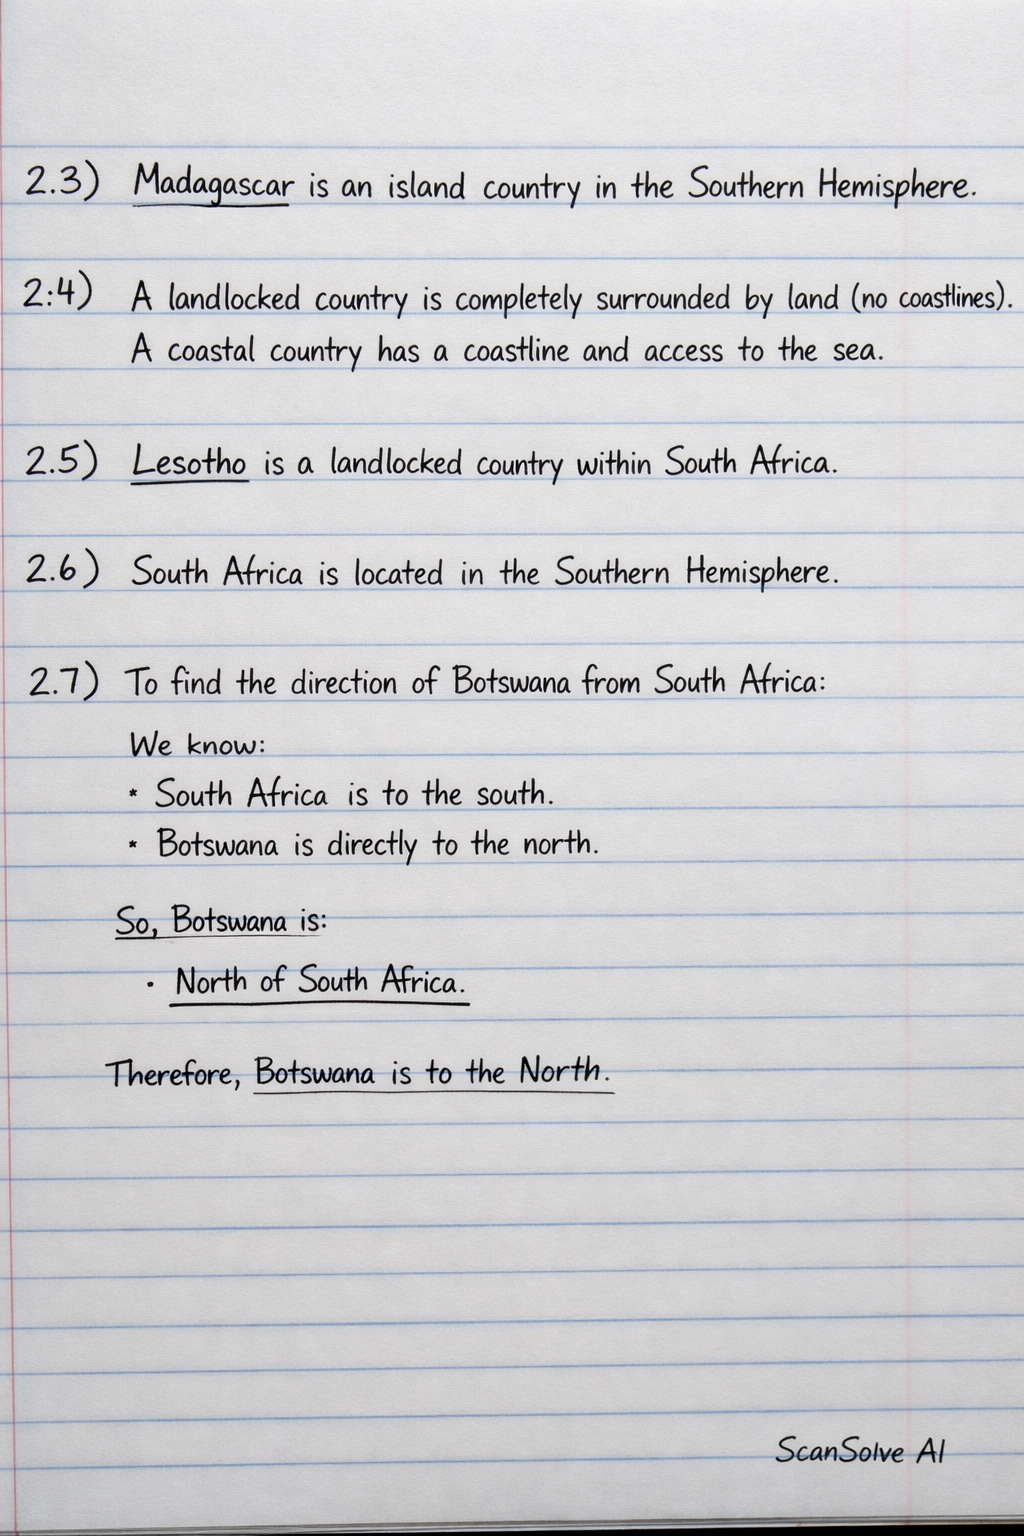 2.3) Madagascar is an island country in the Southern Hemisphere.
2:4) A landlocked country is completely surrounded by land (no coastlines).
A coastal country has a coastline and access to the sea.
2.5) Lesotho is a landlocked country within South Africa.
2.6) South Africa is located in the Southern Hemisphere.
2.7) To find the direction of Botswana from South Africa:
We know:
* South Africa is to the south.
* Botswana is directly to the north.
So, Botswana is:
· North of South Africa.
Therefore, Botswana is to the North.
ScanSolve AI